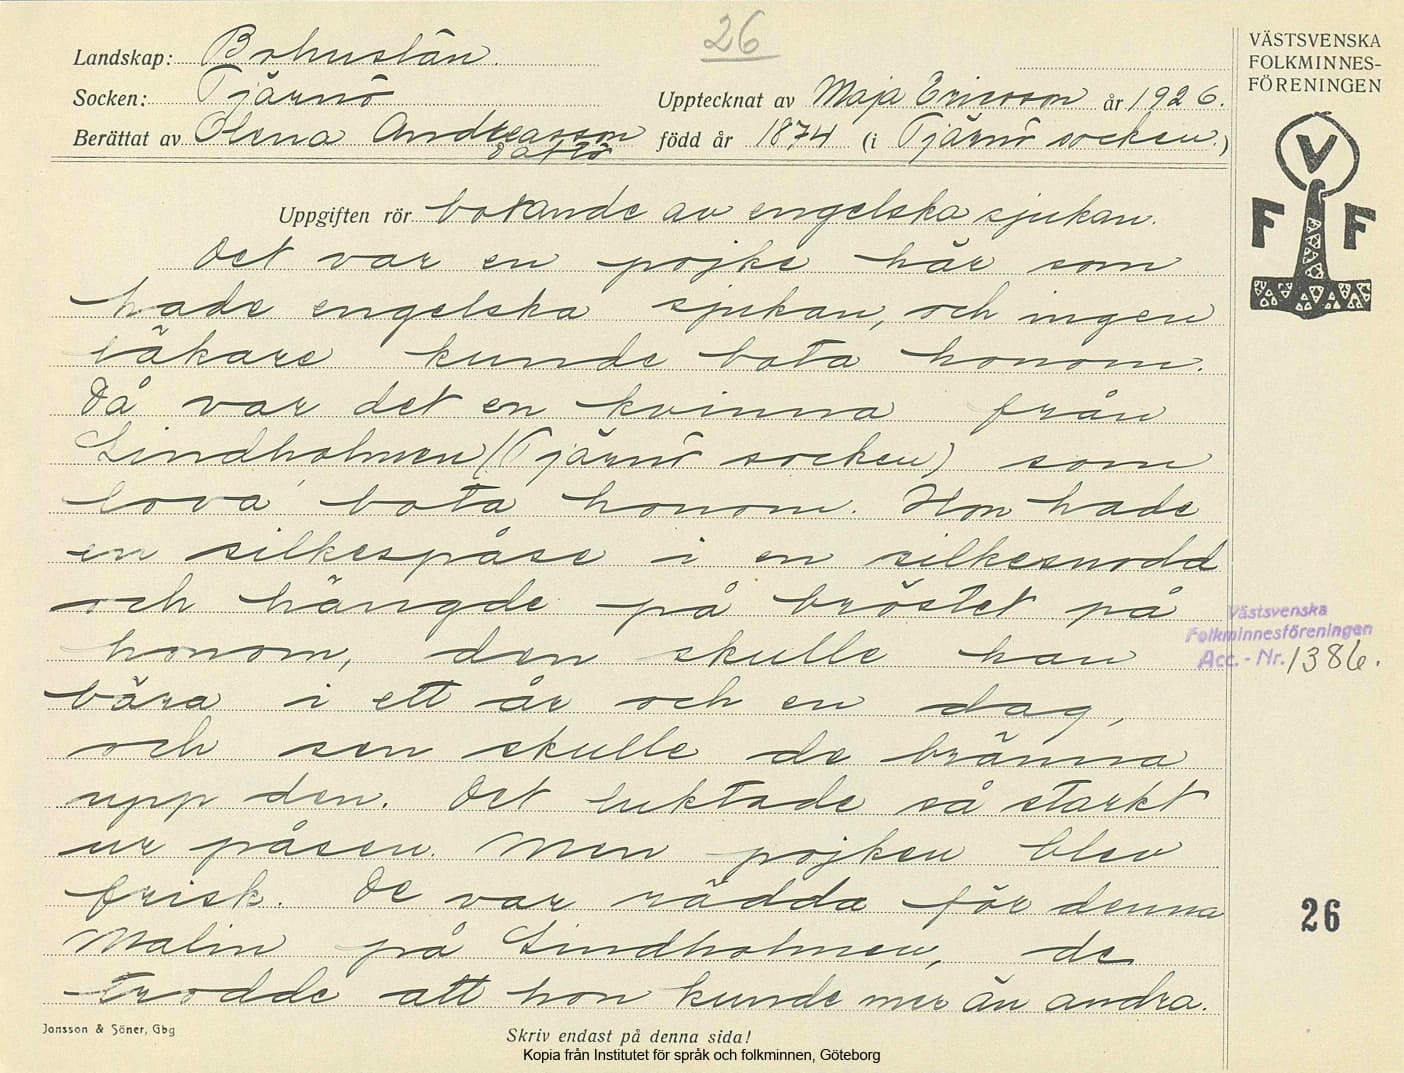 26
Landskap: Bohuslän.
Socken: Tjärnö
Upptecknat av Maja Ericsson år 1926.
Berättat av Olena Andreasson född år 1874 (i Tjärnö socken.)
Saltö
VÄSTSVENSKA
FOLKMINNES-
FÖRENINGEN
V
F F
Uppgiften rör botande av engelska sjukan.
Det var en pojke här som
hade engelska sjukan, och ingen
läkare kunde bota honom.
Då var det en kvinna från
Lindholmen (Tjärnö socken) som
lova bota honom. Hon hade
en silkespåse i en silkesnodd
och hängde på bröstet på
honom, den skulle han
bära i ett år och en dag,
och sen skulle de bränna
upp den. Det luktade så starkt
ur påsen. Men pojken blev
frisk. De var rädda för denna
Malin på Lindholmen, de
trodde att hon kunde mer än andra.
Västsvenska
Folkminnesföreningen
Acc. - Nr. 1386.
26
Jonsson & Söner, Gbg
Skriv endast på denna sida!
Kopia från Institutet för språk och folkminnen, Göteborg